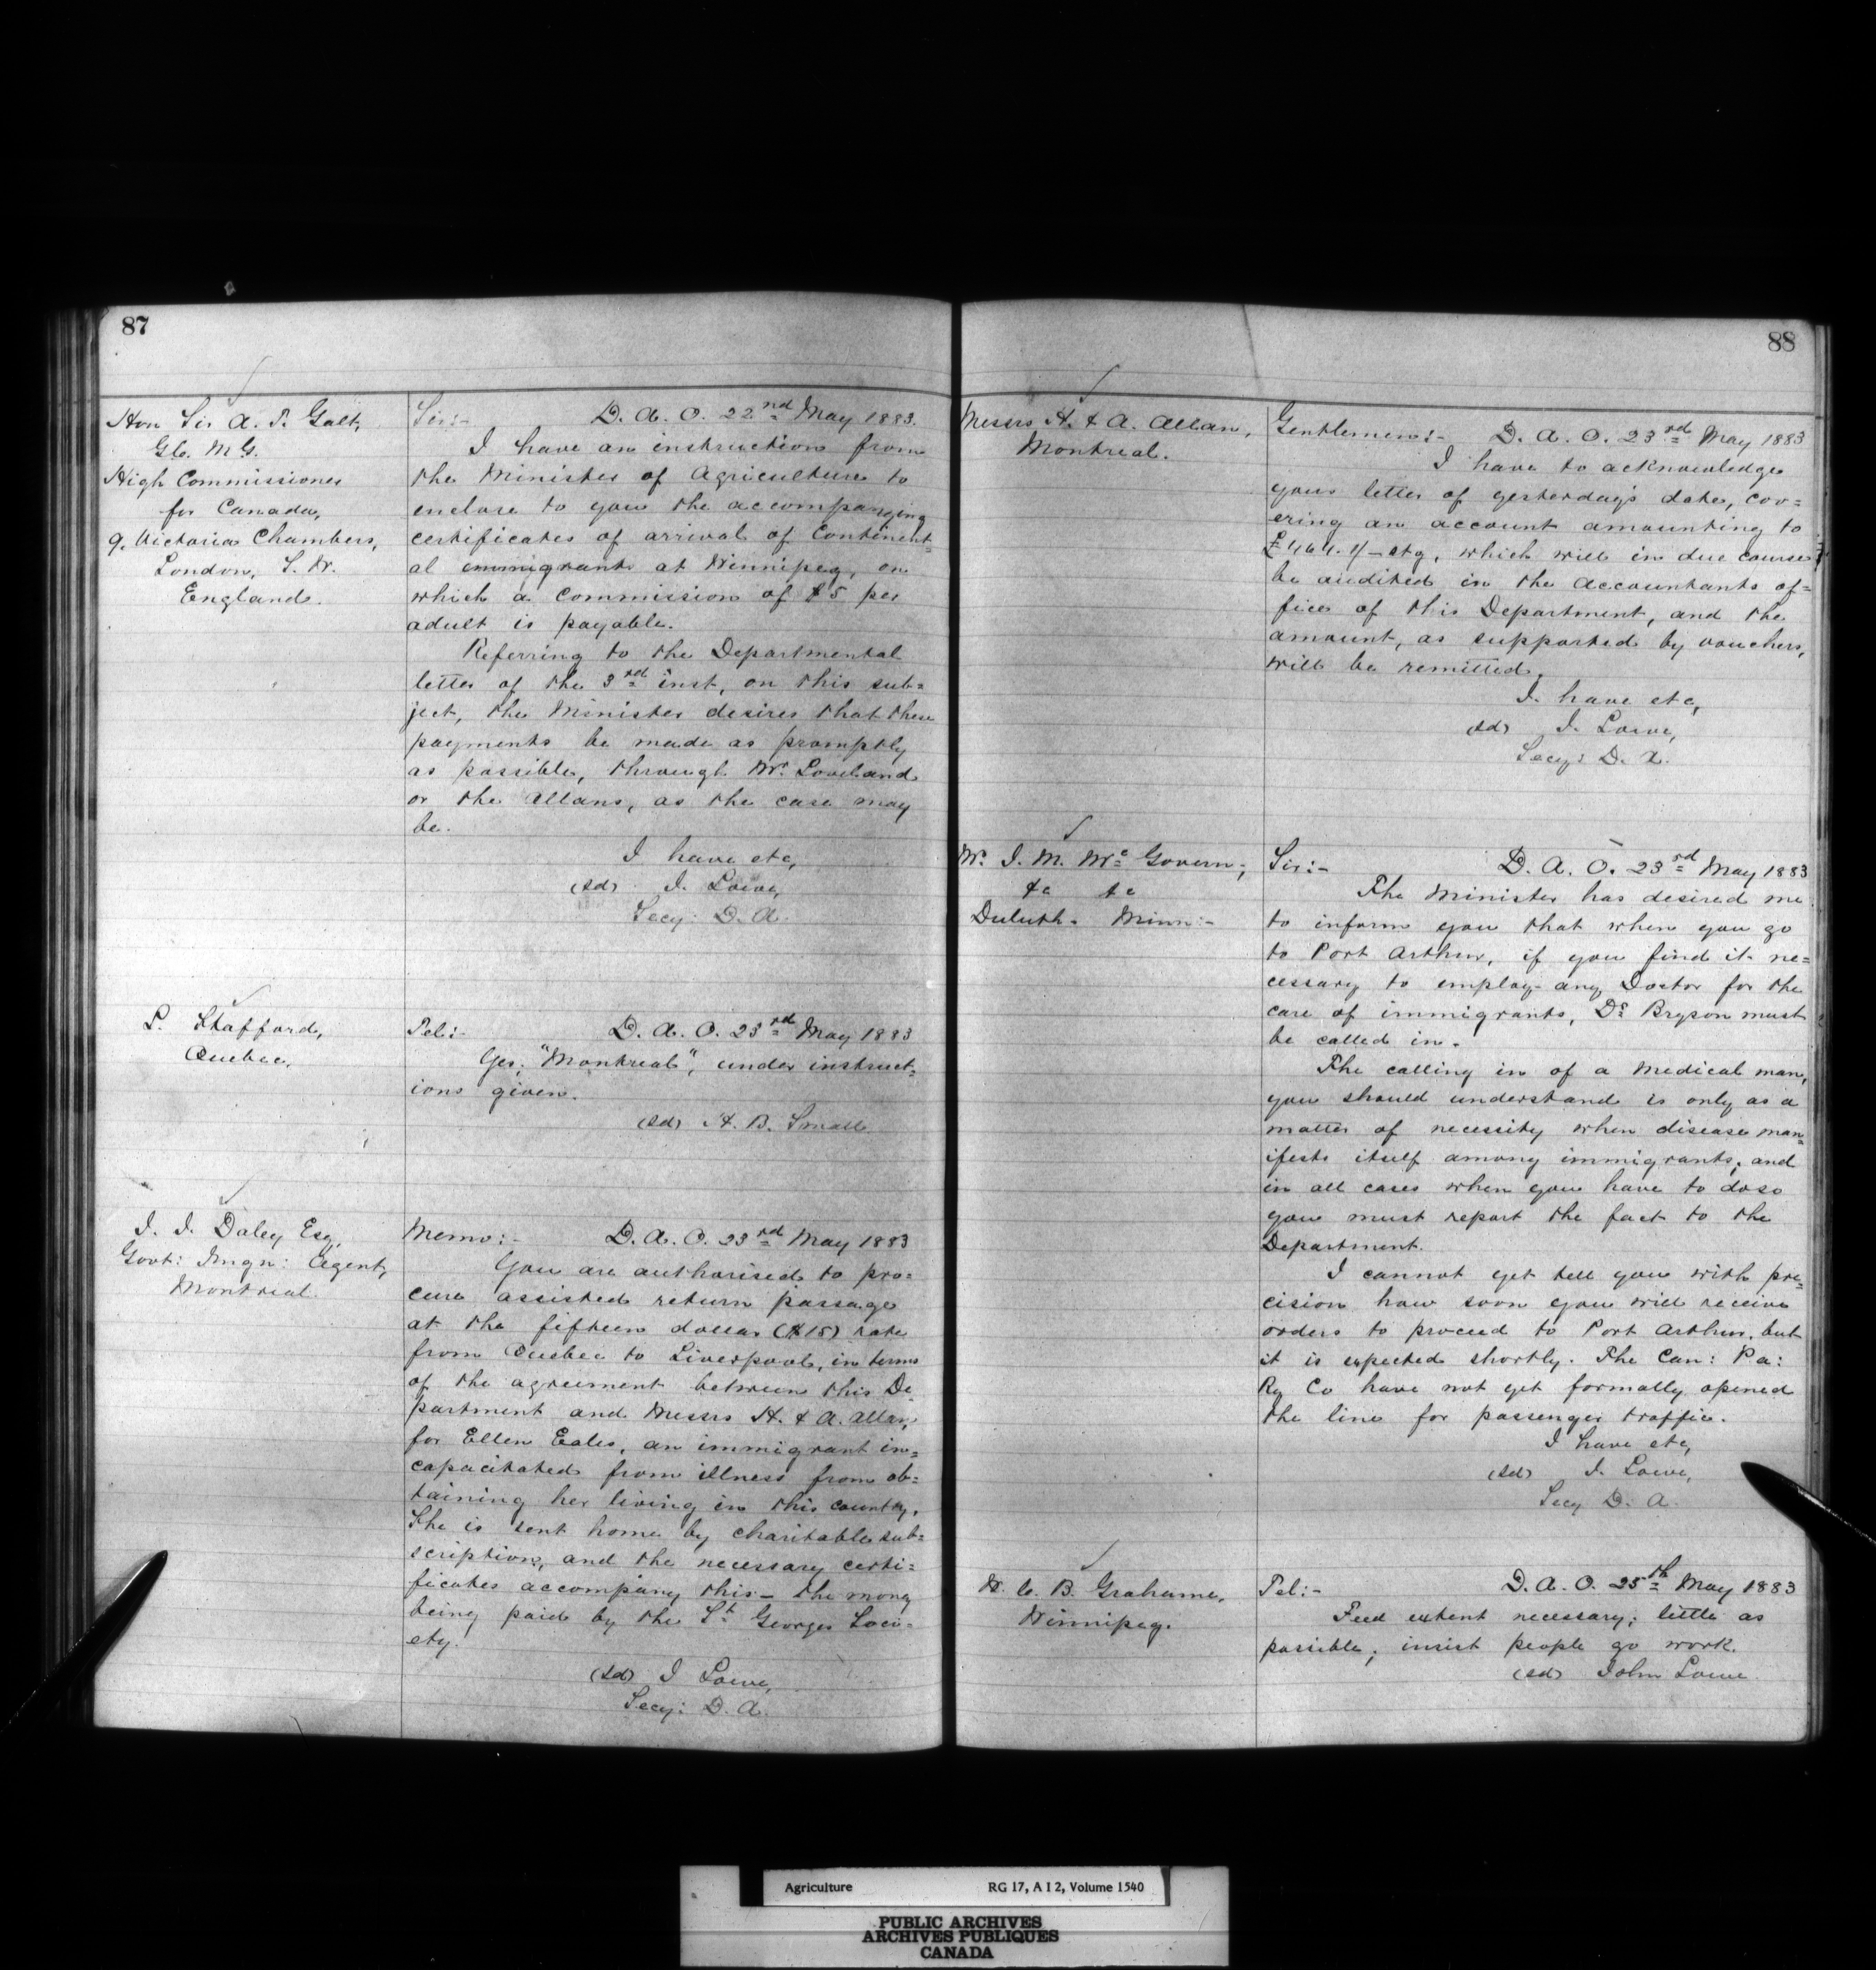 87
Hon Sir A. T. Galt,
G.C.M.G.
High Commissioner
for Canada,
9. Victoria Chambers,
London, S. W.
England.
Sir:- D. A. O. 22nd May 1883.
I have an instruction from
the Minister of Agriculture to
enclose to you the accompanying
certificates of arrival of Continent=
al immigrants at Winnipeg, on
which a commission of $5 per
adult is payable.
Referring to the Departmental
letter of the 3rd inst, on this sub=
ject, the Minister desires that these
payments be made as promptly
as possible, through Mr. Loveland
or the Allans, as the case may
be.
I have etc,
(sd) J. Lowe,
Secy: D. A.
L. Stafford,
Quebec.
Tel:- D. A. O. 23rd May 1883
Yes, "Montreal", under instruct=
ions given.
(sd) H. B. Small
J. J. Daley Esq,
Govt: Imgn: Agent,
Montreal.
Memo:- D. A. O. 23rd May 1883
You are authorised to pro=
cure assisted return passage
at the fifteen dollar ($15) rate
from Quebec to Liverpool, in terms
of the agreement between this De=
partment and Messrs H. & A. Allan,
for Ellen Eales, an immigrant in=
capacitated from illness from ob=
taining her living in this country.
She is sent home by charitable sub=
scription, and the necessary certi=
ficates accompany this - the money
being paid by the St Georges Soci=
ety.
(sd) J Lowe,
Secy: D. A.
88
Messrs H. & A. Allan,
Montreal.
Gentlemen:- D. A. O. 23rd May 1883
I have to acknowledge
your letter of yesterday's date, cov=
ering an account amounting to
stg, which will in due course
be audited in the Accountants of=
fice of this Department, and the
amount, as supported by vouchers,
will be remitted.
I have etc,
(sd) J. Lowe,
Secy: D. A.
Mr. J. M. McGovern,
&c &c
Duluth. Minn:-
Sir:- D. A. O. 23rd May 1883
The Minister has desired me
to inform you that when you go
to Port Arthur, if you find it ne=
cessary to employ any Doctor for the
care of immigrants, Dr Bryson must
be called in.
The calling in of a medical man,
you should understand is only as a
matter of necessity when disease man=
ifests itself among immigrants, and
in all cases when you have to do so
you must report the fact to the
Department.
I cannot yet tell you with pre=
cision how soon you will receive
orders to proceed to Port Arthur, but
it is expected shortly. The Can: Pa:
Ry Co have not yet formally opened
the line for passenger traffic.
I have etc,
(sd) J. Lowe,
Secy D. A.
W. C. B. Grahame,
Winnipeg.
Tel:- D. A. O. 25th May 1883
Feed extent necessary; little as
possible; insist people go work.
(sd) John Lowe.
Agriculture RG 17, A I 2, Volume 1540
PUBLIC ARCHIVES
ARCHIVES PUBLIQUES
CANADA